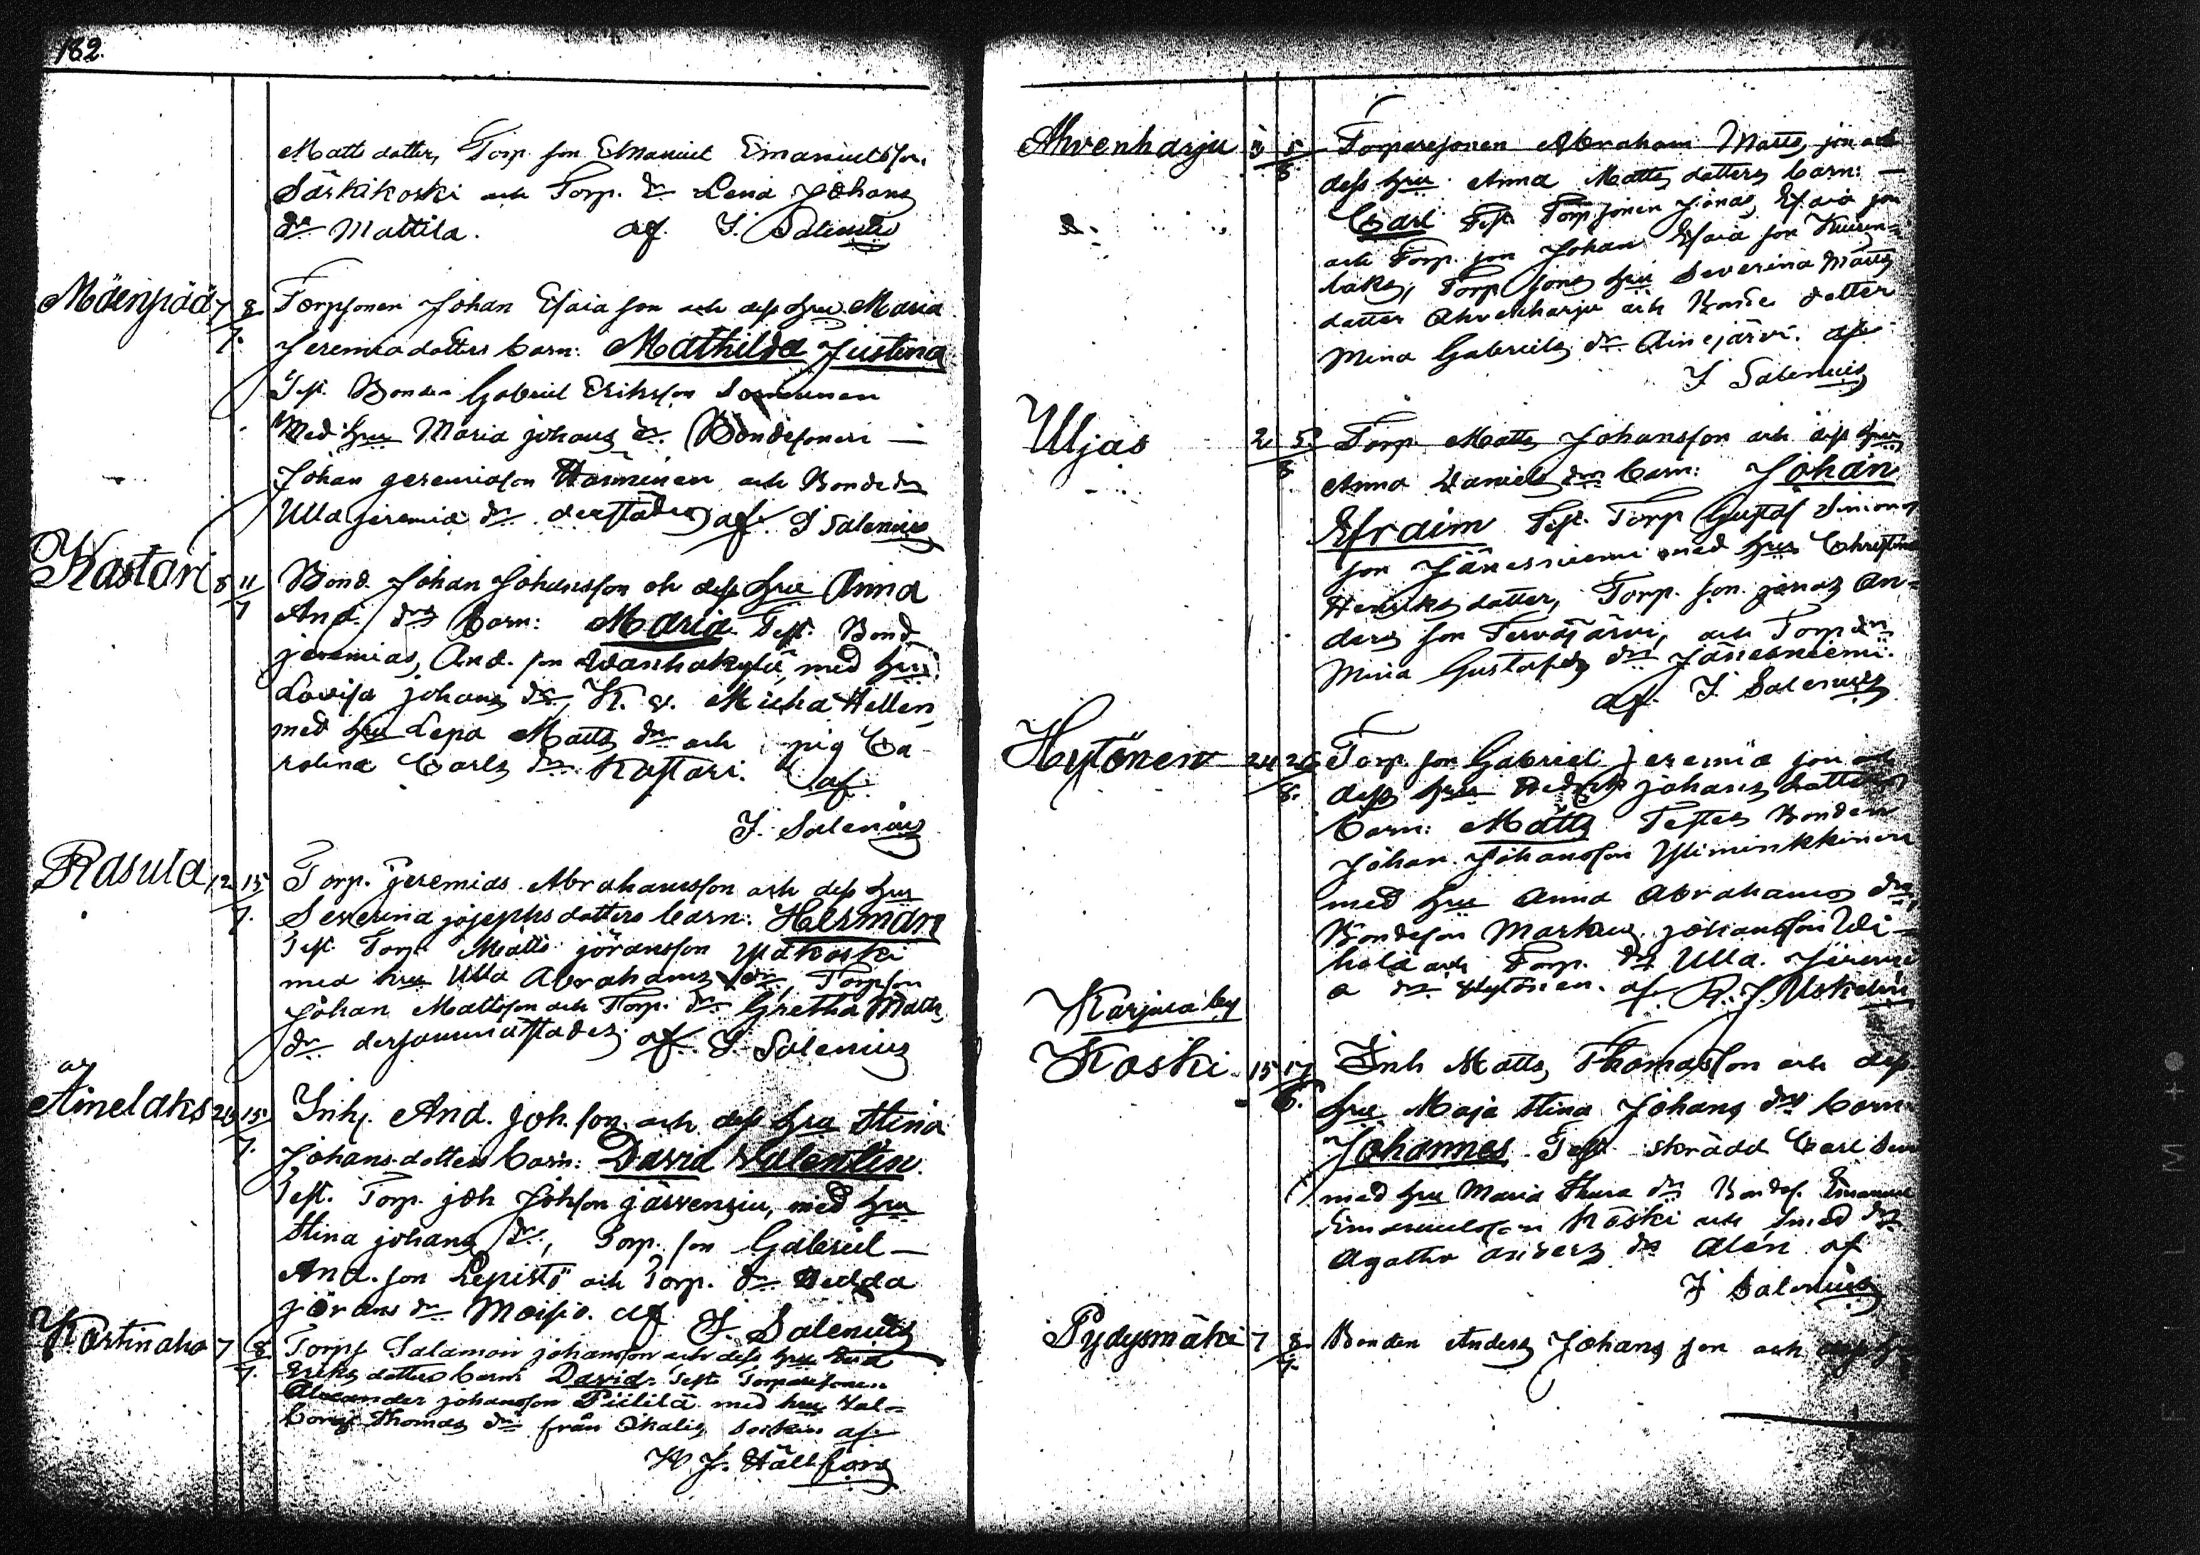 182.
Matts dotter, Torp. son Emanuel Emanuelsson
Särkikoski och Torp. dr Lena Johans
dr Mattila. af. J. Salenius
Mäenpää 7 8/7. Torpsonen Johan Esaiason och dess hru Maria
Jeremiadotters barn: Mathilda Justina
Test. Bonden Gabriel Eriksson
Med hru Maria johans dr. Bondesonen —
Johan jeremiason Hanninen och Bonde dr
Ulla jeremia dr derstädes af. J Salenius
Kastari 8 11/7 Bond. Johan Johansson och dess hru Anna
And. drs barn: Maria Test. Bond.
jeremias, And. son Wanhakylä, med hru
Lovisa johans dr, K. v. Micha Hellen,
med hru Lepa Matts dr och pig Ca-
rolina Carls dr Kastari. af.
J. Salenius
Rasula 12 15/7. Torp. Jeremias Abrahamsson och dess hru
Severina josephsdotters barn: Herman
Test. Torp. Matts jöransson Yläkoski
med hru Ulla Abrahams dr, Torpson
Johan Mattsson och Torp. dr Gretha Matts
dr dersammastädes af. J. Salenius
Ainelaks 15/7. Inh. And. Joh. son och dess hru Stina
Johansdotters barn: David Valentin.
Test. Torp. joh Johsson järvensiu, med hru
Stina johans dr, Torp. son Gabriel —
And. son Lepistö och Torp. dr Hedda
jörans dr Moisio. af J. Salenius
7 8/7. Torps Salamon johansson och dess hru
Eriks dotters barn David. Test. Torparesonen
Alexander johansson Piililä med hru Val-
borg Thomas dr från Ikalis socken af.
Hällfors
Ahvenharju 3 5/8. Torparesonen Abraham Matts son och
dess hru Anna Matts dotters barn: —
Carl Test. Torpsonen Jonas Esaia son
och Torp. son Johan Esaia son Kuusen-
laks, Torp sons hru Severina Matts
dotter Ahvenharju och Bonde dotter
Mina Gabriels dr Ainejärvi. af.
J Salenius
Uljas 2 5/8 Torp. Matts Johansson och dess hru
Anna Daniels drs barn: Johan
Efraim Test. Torp Gustaf Simons
son Jänesniemi med hru Christina
Henriks dotter, Torp. son jonas An-
ders son Tervajärvi, och Torp dr
Mina Gustafs dr Jänesniemi.
af. J. Salenius
Hytönen 24 26/8. Torp. son Gabriel Jeremia son och
dess hru Hedvik johans dotters
barn: Matts Testes Bonden
Johan Johansson Yliminkkinen
med hru Anna Abrahams dr,
Bondeson Markus johansson Wi-
hola och Torp. dr Ulla Jeremi
a dr Hytönen. af.
Karjula by
Koski 15 17/6. Inh Matts Thomasson och dess
hru Maja Stina Johans drs barn
Johannes Test. skrädd Carl
med hru Maria Thure dr Bondes. Emanuel
Emanuelsson Koski och smed dr
Agatha anders dr Alén af
J Salenius
Pydysmäki 7 8/7. Bonden Anders Johans son och dess